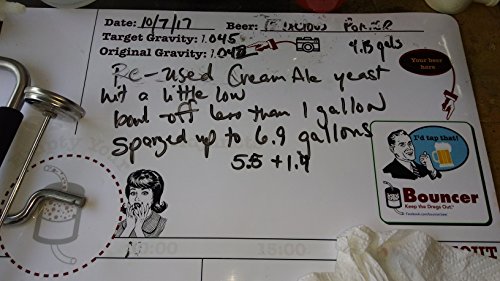 Date: 10/7/17 Beer: Porter
Target Gravity: 1.045
Original Gravity: 1.042
4.15 gals
Your beer here
Re-used Cream Ale yeast
hit a little low
boil-off less than 1 gallon
Sparged up to 6.9 gallons
5.5 + 1.4
I'd tap that!
Bouncer
Keep the Dregs Out.
00:00 15:00
OUT